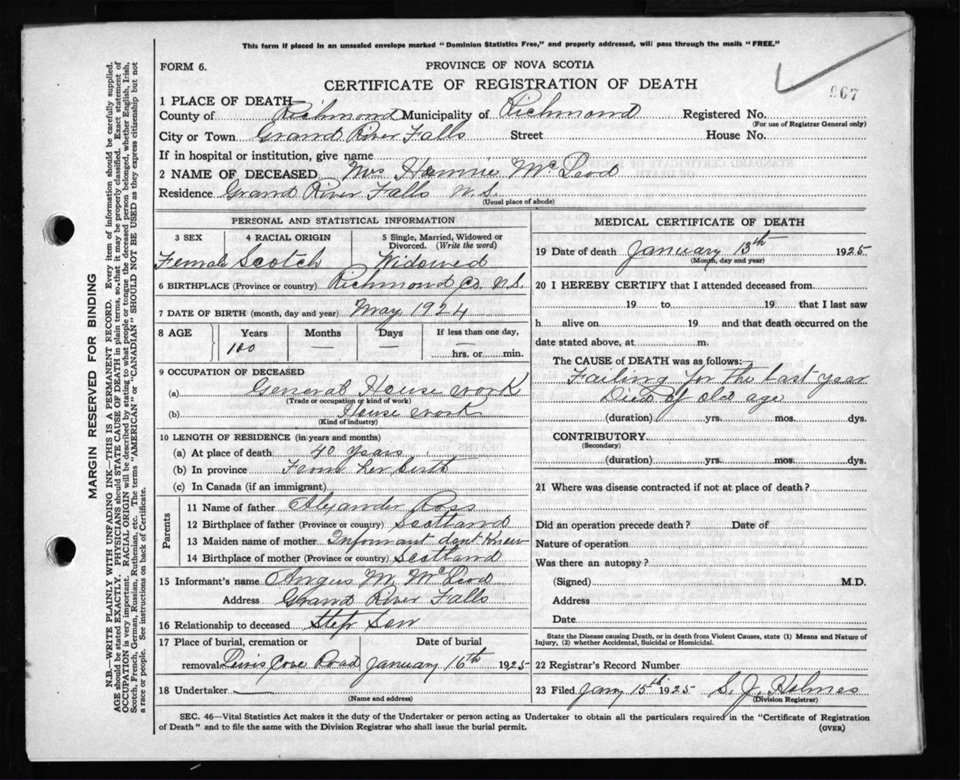 This form if placed in an unsealed envelope marked "Dominion Statistics Free," and properly addressed, will pass through the mails "FREE."
FORM 6.
PROVINCE OF NOVA SCOTIA
CERTIFICATE OF REGISTRATION OF DEATH
967
1 PLACE OF DEATH
County of Richmond Municipality of Richmond Registered No.
(For use of Registrar General only)
City or Town Grand River Falls Street House No.
If in hospital or institution, give name
2 NAME OF DECEASED Mrs McLeod
Residence Grand River Falls N.S.
(Usual place of abode)
PERSONAL AND STATISTICAL INFORMATION
3 SEX 4 RACIAL ORIGIN 5 Single, Married, Widowed or Divorced. (Write the word)
Female Scotch Widowed
6 BIRTHPLACE (Province or country) Richmond Co. N.S.
7 DATE OF BIRTH (month, day and year) May 1924
8 AGE Years Months Days If less than one day,
100 — — — hrs. or min.
9 OCCUPATION OF DECEASED
(a) General House work
(Trade or occupation or kind of work)
(b) House work
(Kind of industry)
10 LENGTH OF RESIDENCE (in years and months)
(a) At place of death 40 years
(b) In province her birth
(c) In Canada (if an immigrant)
Parents
11 Name of father Alexander Ross
12 Birthplace of father (Province or country) Scotland
13 Maiden name of mother Informant dont Know
14 Birthplace of mother (Province or country) Scotland
15 Informant's name Angus M. McLeod
Address Grand River Falls
16 Relationship to deceased Step Son
17 Place of burial, cremation or Date of burial
removal Lewis Cove Road January 16th 1925
18 Undertaker —
(Name and address)
MEDICAL CERTIFICATE OF DEATH
19 Date of death January 13th 1925
(Month, day and year)
20 I HEREBY CERTIFY that I attended deceased from
19 to 19 that I last saw
h alive on 19 and that death occurred on the
date stated above, at m.
The CAUSE of DEATH was as follows:
Failing for the last year
Died of old age
(duration) yrs. mos. dys.
CONTRIBUTORY
(Secondary)
(duration) yrs. mos. dys.
21 Where was disease contracted if not at place of death?
Did an operation precede death? Date of
Nature of operation
Was there an autopsy?
(Signed) M.D.
Address
Date
State the Disease causing Death, or in death from Violent Causes, state (1) Means and Nature of
Injury, (2) whether Accidental, Suicidal or Homicidal.
22 Registrar's Record Number
23 Filed Jany 15th 1925 S. J. Holmes
(Division Registrar)
SEC. 46—Vital Statistics Act makes it the duty of the Undertaker or person acting as Undertaker to obtain all the particulars required in the "Certificate of Registration
of Death" and to file the same with the Division Registrar who shall issue the burial permit.
(OVER)
MARGIN RESERVED FOR BINDING
N.B.—WRITE PLAINLY WITH UNFADING INK—THIS IS A PERMANENT RECORD. Every item of information should be carefully supplied.
AGE should be stated EXACTLY. PHYSICIANS should STATE CAUSE OF DEATH in plain terms, so that it may be properly classified. Exact statement of
OCCUPATION is very important. RACIAL ORIGIN will be described by stating to what people or tongue the deceased person belonged, whether English, Irish,
Scotch, French, German, Russian, Ruthenian, etc. The terms "AMERICAN" or "CANADIAN" SHOULD NOT BE USED as they express citizenship but not
a race or people. See instructions on back of Certificate.